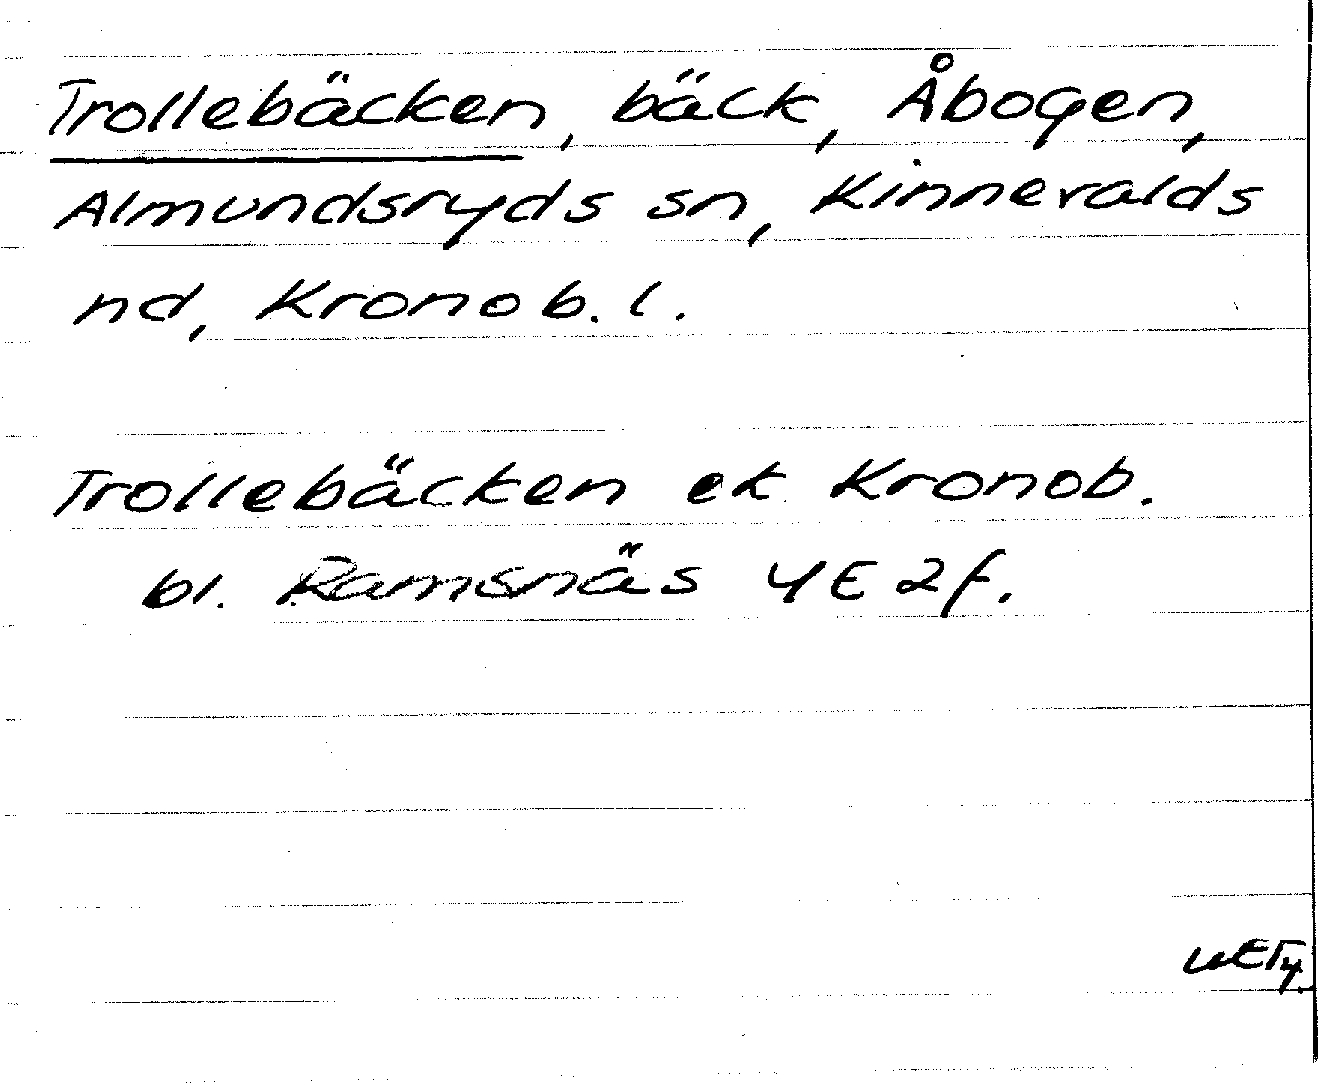 Trollebäcken, bäck, Åbogen,
Almundsryds sn, Kinnevalds
nd, Kronob. l.
Trollebäcken ek Kronob.
bl. Ramsnäs 4E 2f.